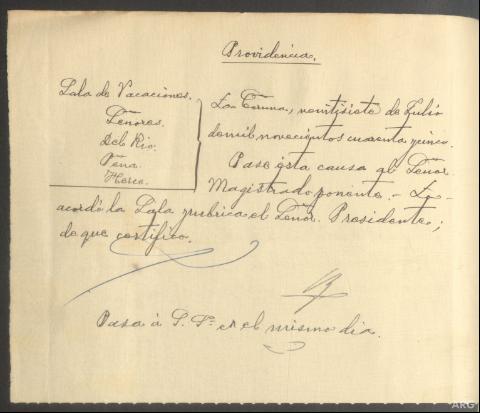 Providencia.
Sala de Vacaciones.
Señores.
Del Rio.
Peña.
Herce.
La Coruña, veintisiete de Julio
de mil novecientos cuarenta y cinco.
Pase esta causa al Señor
Magistrado ponente. - Lo
acordó la Sala y rubrica el Señor Presidente;
de que certifico.
Pasa á S. Sª en el mismo dia.
ARG